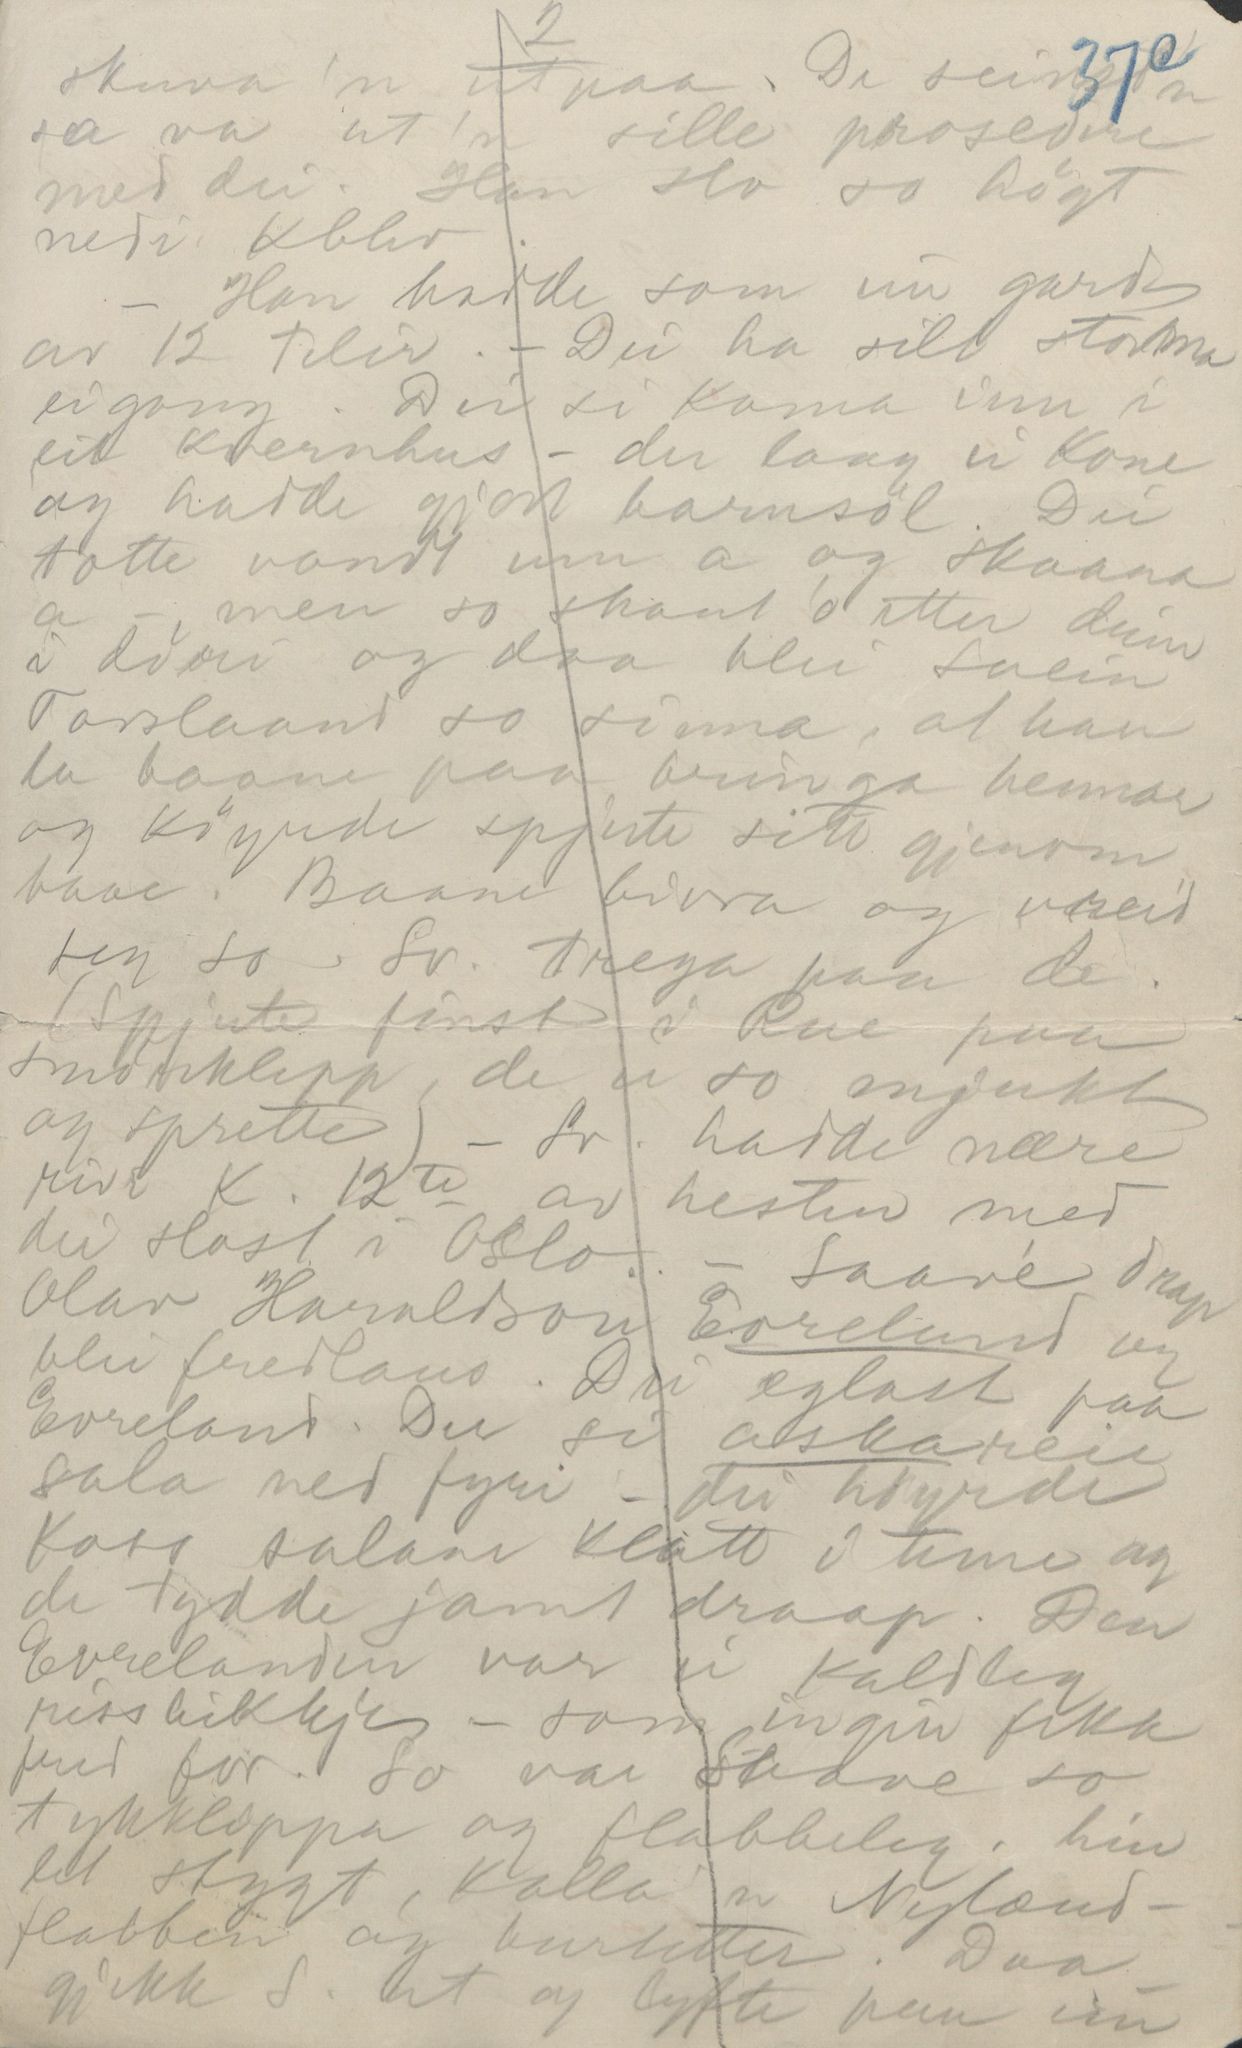 2
37e
skuva 'n utpaa. De
sa va ut 'n sille prosedere
med dei. Han slo so högt
nedi
– Han hadde som ein gard
av 12 – Dei ha silt storma
eigong. Dei si koma inn i
eit kvernhus – der laag ei kone
og hadde gjort barnsöl. Dei
totte vondt um a og skaana
a –, men so skaut 'o etter deim
i döri og daa blei Svein
Torslaand so sinna, at han
la baane paa bringa hennar
og köyrde spjute sitt gjenom
baae. Baane bivra og vreid
seg so. Sv. trega paa de.
(Spjute finst i Rue paa
smörklepp, de er so mjukt
og sprette) – Sv. hadde nære
rivi K. 12te av hesten med
dei slost i Oslo. – Saave drap
Olav Haraldson Evreland og
blei fredlaus. Dei eglast paa
Evreland. Der si askareie
sala ned fyri – dei höyrde
koss salane klatt i tune og
de tydde jamt draap. Den
Evrelanden var ei kaldleg
rissbikkje – som ingin fekk
fred for. So var Saave so
tykkleppa og flabbeleg. hin
let stygt, kalla 'n Nyland-
flabben og burtetter. Daa
gjekk S. ut og lyfte paa ein